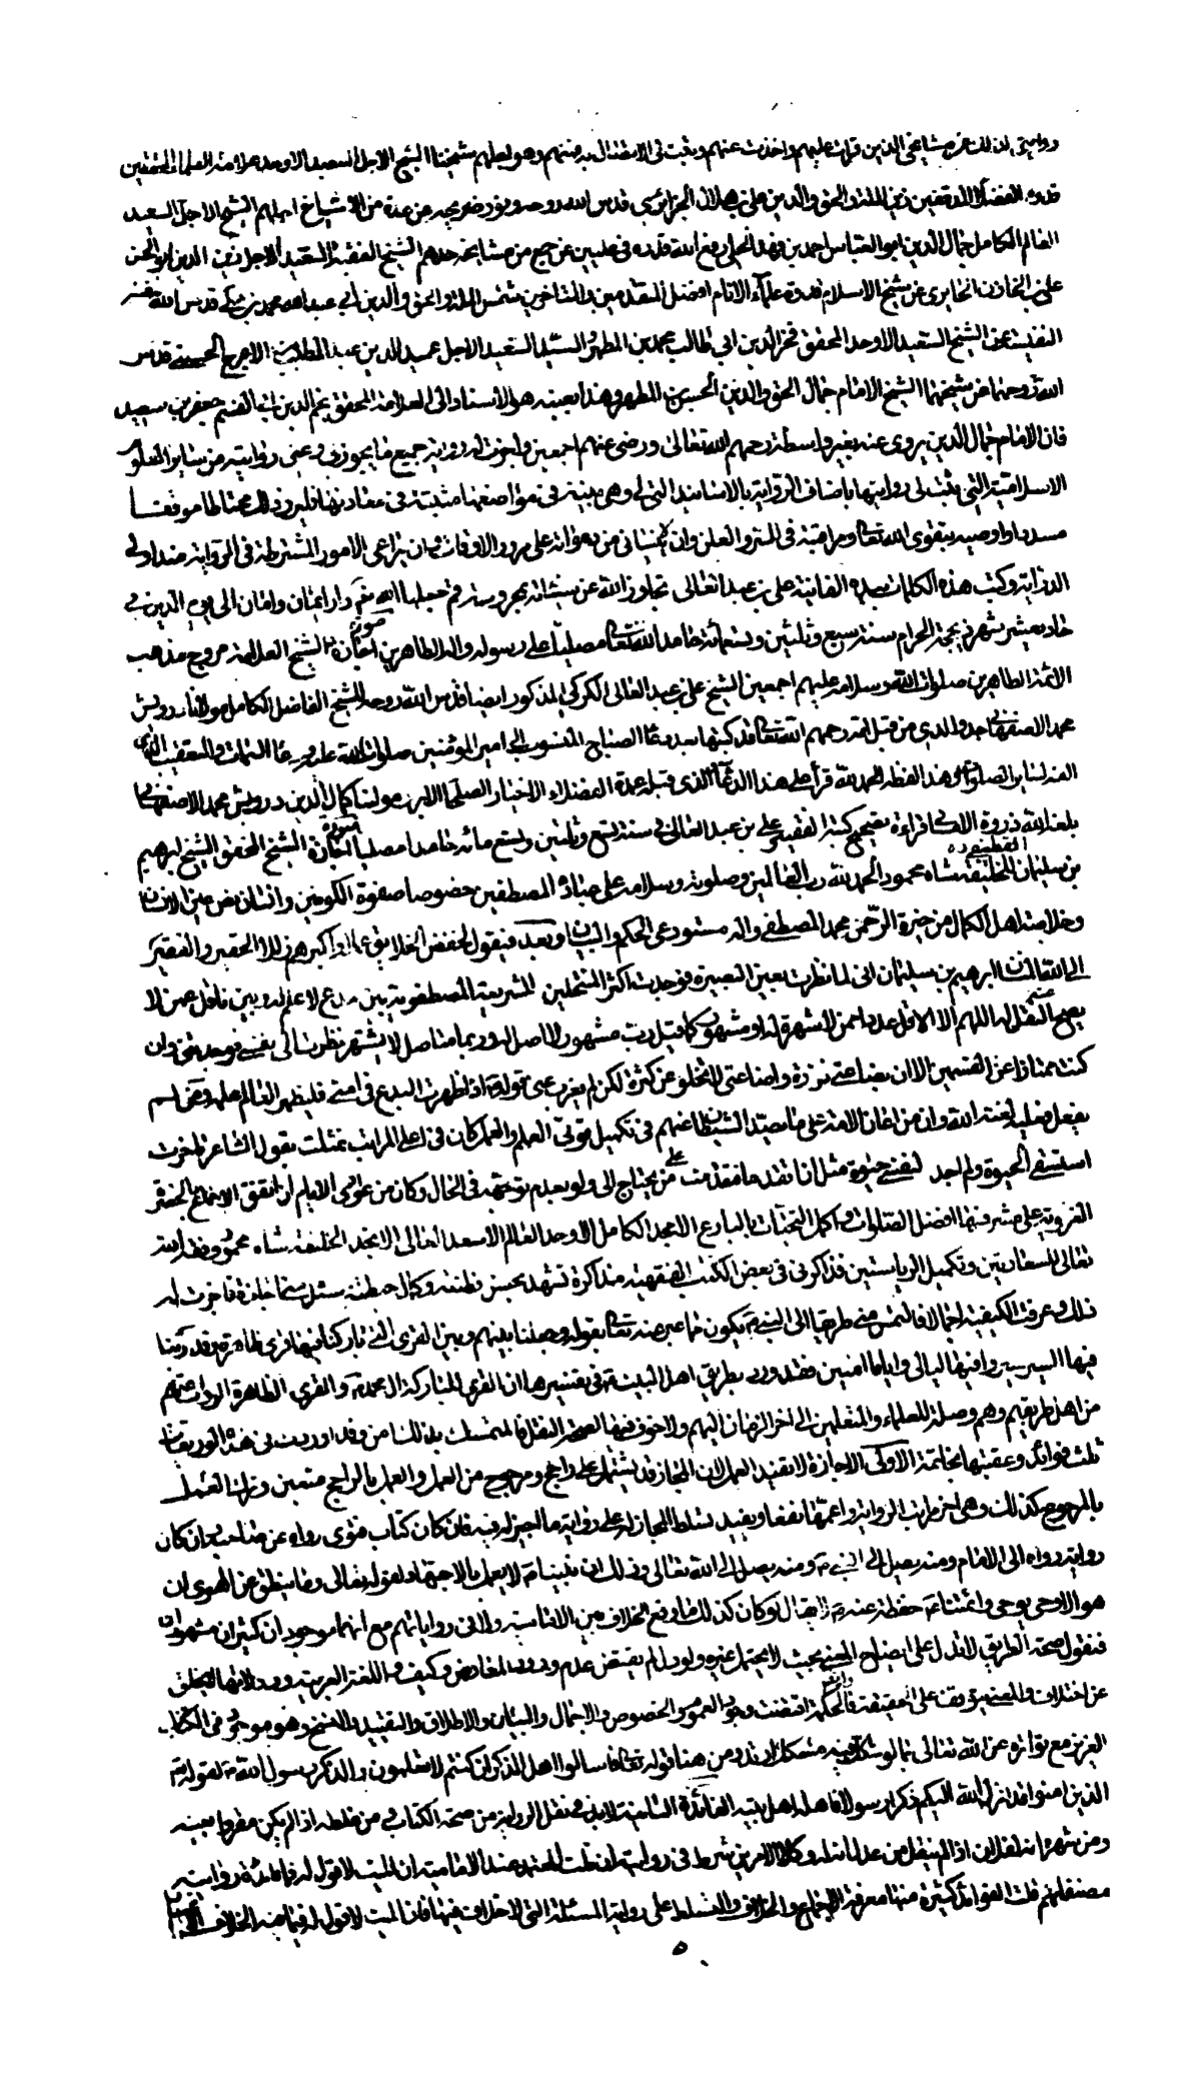 روايته لذلك عن مشايخي الذين قرأت عليهم واخذت عنهم وثبت لي الاتصال بهم منهم وهو اعلمهم شيخنا الشيخ الاجل السعيد الاوحد علامة العلماء المحققين
قدوة الفضلاء المدققين زين الملة والحق والدين علي بن هلال الجزائري قدس الله روحه ونور ضريحه عن عدة من الاشياخ اجلهم الشيخ الاجل السعيد
العالم الكامل جمال الدين ابو العباس احمد بن فهد الحلي رفع الله قدره في عليين عن جمع من مشايخه احدهم الشيخ الفقيه السعيد الاجل زين الدين ابو الحسن
علي بن الخازن الحايري عن شيخ الاسلام قدوة علماء الانام افضل المتقدمين والمتاخرين شمس الملة والحق والدين ابي عبد الله محمد بن مكي قدس الله نفسه
النفيسة عن الشيخ السعيد الاوحد المحقق فخر الدين ابي طالب محمد بن المطهر والسيد السعيد الاجل عميد الدين عبد المطلب بن الاعرج الحسيني قدس
الله روحهما عن شيخهما الشيخ الامام جمال الحق والدين الحسن بن المطهر وهذا بعينه هو الاسناد الى العلامة المحقق نجم الدين ابي القسم جعفر بن سعيد
فان الامام جمال الدين يروي عنه بغير واسطة رحمهم الله تعالى ورضي عنهم اجمعين واجزت له رواية جميع ما يجوز لي وعني روايته من ساير العلوم
الاسلامية التي يثبت لي روايتها باصناف الرواية بالاسانيد التي لي وهي مبينة في مواضعها مثبتة في معادنها فليرو ذلك محتاطا موفقا
مسددا واوصيه بتقوى الله تعالى ومراقبته في السر والعلن وان لا ينساني من دعواته على مرور الاوقات وان يراعي الامور المشترطة في الرواية عند اولي
الدراية وكتب هذه الكلمات بيده الفانية علي بن عبد العالي تجاوز الله عن سيئاته بمحروسة قم جعلها الله دار ايمان وامان الى يوم الدين في
حادي عشر شهر ذي حجة الحرام سنة سبع وثلثين وتسعمائة حامدا لله تعالى مصليا على رسوله واله الطاهرين صورة اجازة الشيخ العلامة مروج مذهب
الائمة الطاهرين صلوات الله وسلامه عليهم اجمعين الشيخ علي بن عبد العالي الكركي المذكور ايضا قدس الله روحه للشيخ الفاضل الكامل مولانا درويش
محمد الاصفهاني جد والدي من قبل امه رحمهم الله تعالى قد كتبها بعد دعاء الصباح المنسوب الى امير المؤمنين صلوات الله عليه ودعاء السمات والتعقيب
لساير الصلوات وهذا لفظه الحمد لله قرأ علي هذا الدعاء الذي قبله عمدة الفضلاء الاخيار الصلحاء الابرار مولينا كمال الدين درويش محمد الاصفهاني
بلغه الله ذروة الاماني قراءة تصحيح كتبه الفقير علي بن عبد العالي في سنة تسع وثلثين وتسع مائة حامدا مصليا صورة اجازة الشيخ المحقق الشيخ ابرهيم
بن سليمان القطيفي ره للخليفة شاه محمود الحمد لله رب العالمين وصلوته وسلامه على عباده المصطفين خصوصا صفوة الكونين وانسان عين الانسان
وخلاصة اهل الكمال من خيرة الرحمن محمد المصطفى واله مستودعي الحكم والبيان وبعد فيقول اخفض الخلايق عملا واكبرهم زللا الحقير والفقير
الى الله تعالى ابرهيم بن سليمان اني لما نظرت بعين البصيرة فوجدت اكثر المنتحلين للشريعة المصطفوية بين مدع لا علم له وبين ناقل عمن لا
يصح النقل عنه اللهم الا الاقل عددا ممن لا شهرة له او مشهور كما قيل رب مشهور لا اصل له وربما متاصل لا يشتهر نظرت الى نفسي فوجدتني وان
كنت ممتازا عن القسمين الا ان بضاعتي نزرة واضاعتي لا تخلو عن كثرة لكن لم يعزب عني قوله اذا ظهرت البدع في امتي فليظهر العالم علمه فمن لم
يفعل فعليه لعنة الله وان من اعان الامة على ما يصد الشيطان عنهم في تكميل قوتي العلم والعمل كان في اعلى المراتب تمثلت بقول الشاعر تاخرت
استبقي الحيوة ولم اجد لنفسي حيوة مثل ان اتقدما فقدمت على من يحتاج الي ولو بعدم توجهه في الحال وكان من عوافي الايام ان اتفق الاجتماع بالحضرة
الغروية على مشرفها افضل الصلوات واكمل التحيات بالبارع الامجد الكامل الاوحد العالم الاسعد العالي الانجد الخليفة شاه محمود وفقه الله
تعالى للسعادتين وتكميل الرياستين فذاكرني في بعض الكتب الفقهية مذاكرة تشهد بحسن فطنته وكمال حيطته سئل سيما اجازة فاجزت له
ذلك وعرفت الكيفية اجمالا فالتمس مني طريقا الى النبي يكون مما عبر عنه تعالى بقوله وجعلنا بينهم وبين القرى التي باركنا فيها قرى ظاهرة وقدرنا
فيها السير سيروا فيها ليالي واياما امنين فقد ورد بطريق اهل البيت في تفسيرها ان القرى المباركة ال محمد والقرى الظاهرة الرواة عنهم
من اهل طريقهم وهم وصلة للعلماء والمتعلمين الى اخر الزمان اليهم ولا خوف فيها لصحة النقل فالمتمسك بذلك امن وقد اوردت في هذه الوريقات
ثلث فوائد وعقبتها بخاتمة الاولى الاجازة لا تفيد العمل لان المجاز قد يشتمل على راجح ومرجوح من العمل والعمل بالراجح متعين وترك العمل
بالمرجوح كذلك وهي احد مراتب الرواية واعمها نفعا ويفيد تسلط المجاز له على رواية ما اجيز له فيه فان كان كتاب فتوى رواه عن صاحبه وان كان
رواية رواه الى الامام ومنه يصل الى النبي ومنه يصل الى الله تعالى وذلك ان نبينا لا يعمل بالاجتهاد لقوله تعالى وما ينطق عن الهوى ان
هو الا وحي يوحى وائمتنا حفظة عنه لا يقال لو كان كذلك لما وقع الخلاف بين الامامية ولا في رواياتهم مع انهما موجودان كثيران مشهوران
فنقول صحة الطريق لا تدل على ايضاح المعنى بحيث لا يحتمل غيره ولو دل لم يقتض عدم ورود المعارض وكيف واللغة العربية ودلالتها لا تخلو
عن اختلاف والمعنى يتوقف على الحقيقة فالحكمة اقتضت وجود العموم والخصوص والاجمال والبيان والاطلاق والتقييد والنسخ وهو موجود في الكتاب
العزيز مع تواتره عن الله تعالى ومن هنا قوله تعالى فاسالوا اهل الذكر ان كنتم لا تعلمون والذكر رسول الله لقوله
الذين امنوا قد انزل الله اليكم ذكرا رسولا فاهله اهل بيته الفائدة الثانية لا بد في نقل الرواية من صحة الكتاب ومن ضبطه اذا لم يكن مقروا بعينه
ومن شهرة اذا لم ينقل من عدل وكلا الامرين شرط في روايته ان قلت المجتهد عند الامامية ان الميت لا قول له فما فائدة رواية
مصنفاتهم قلت الفوائد كثيرة منها معرفة الاجماع والخلاف والتسلط على رواية المسئلة التي لا خلاف فيها فان الميت لا قول له فيما فيه الخلاف